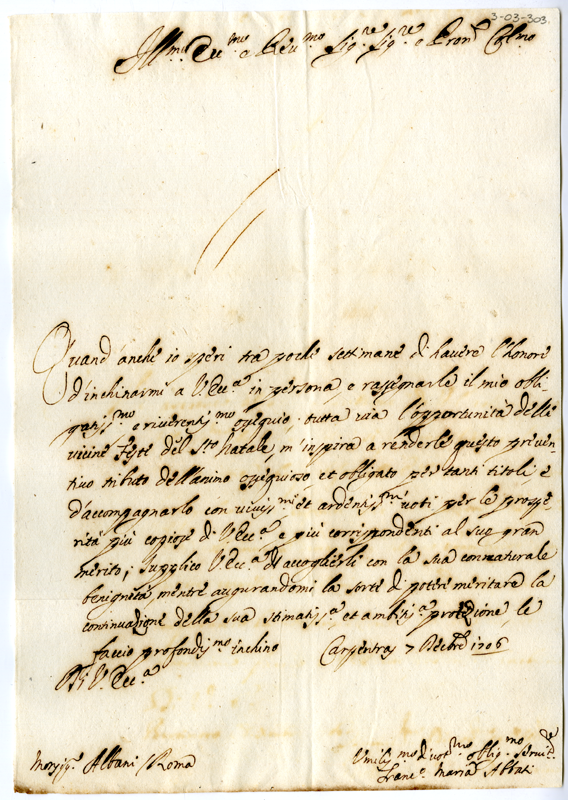 3-03-303.
Ill.mo Ecc.mo e Rev.mo Sig.re Sig.re e Pron. Col.mo
Quand'anche io speri tra poche settimane di havere l'honore
d'inchinarmi a V. Ecc.a in persona, e rassegnarle il mio obli-
gatiss.mo e riverentiss.mo ossequio, tutta via l'opportunità delle
vicine Feste del S.to Natale, m'inspira a renderle questo preven-
tivo tributo dell'animo ossequioso et obligato per tanti titoli e
d'accompagnarlo con viviss.mi et ardentiss.mi voti per le prosspe-
rità più copiose di V. Ecc.a e più correspondenti al suo gran
merito; supplico V. Ecc.a d'accoglierli con la sua connaturale
benignità mentre augurandomi la sorte di potere meritare la
continuazione della sua stimatiss.a, et ambitiss.a protezione, le
faccio profondiss.mo inchino Carpentras 7 Decbre 1706
Di V. Ecc.a
Monsig.r Albani / Roma
Umiliss.mo divot.mo oblig.mo Servit.de
Franc.o Maria Abbati